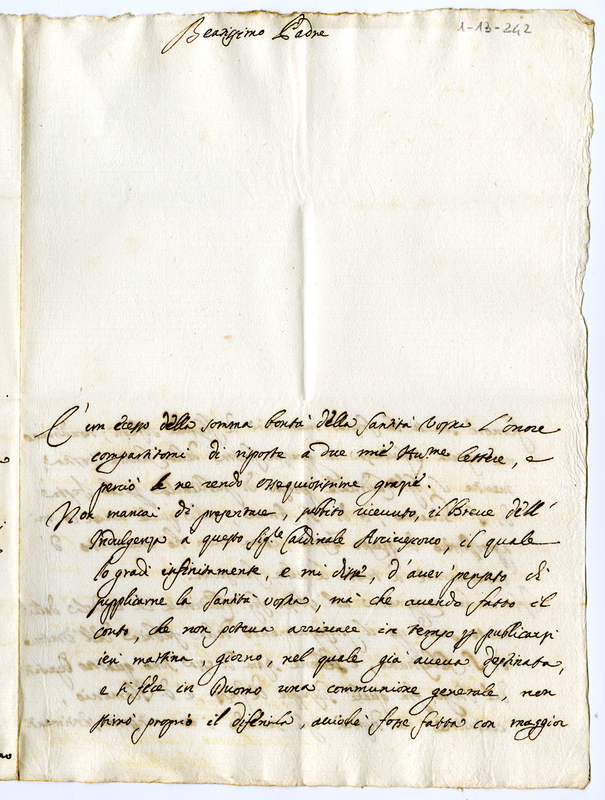 1-13-242
Beatissimo Padre
È un ecesso della somma bontà della Santità Vostra l'onore
compartitomi di risposte a due mie Hu.me lettere, e
perciò le ne rendo ossequiosissime grazie.
Non mancai di presentare, subito ricevuto, il Breve dell'
Indulgenza a questo Sig.le Cardinale Arcivescovo, il quale
lo gradì infinitamente, e mi disse, d'aver pensato di
supplicarne la Santità Vostra, mà che avendo fatto il
conto, che non poteva arrivare in tempo p publicarsi
ieri mattina, giorno, nel quale già aveva destinata,
e si fece in Duomo una communione generale, non
stimò proprio il diferirla, acciochè fosse fatta con maggior